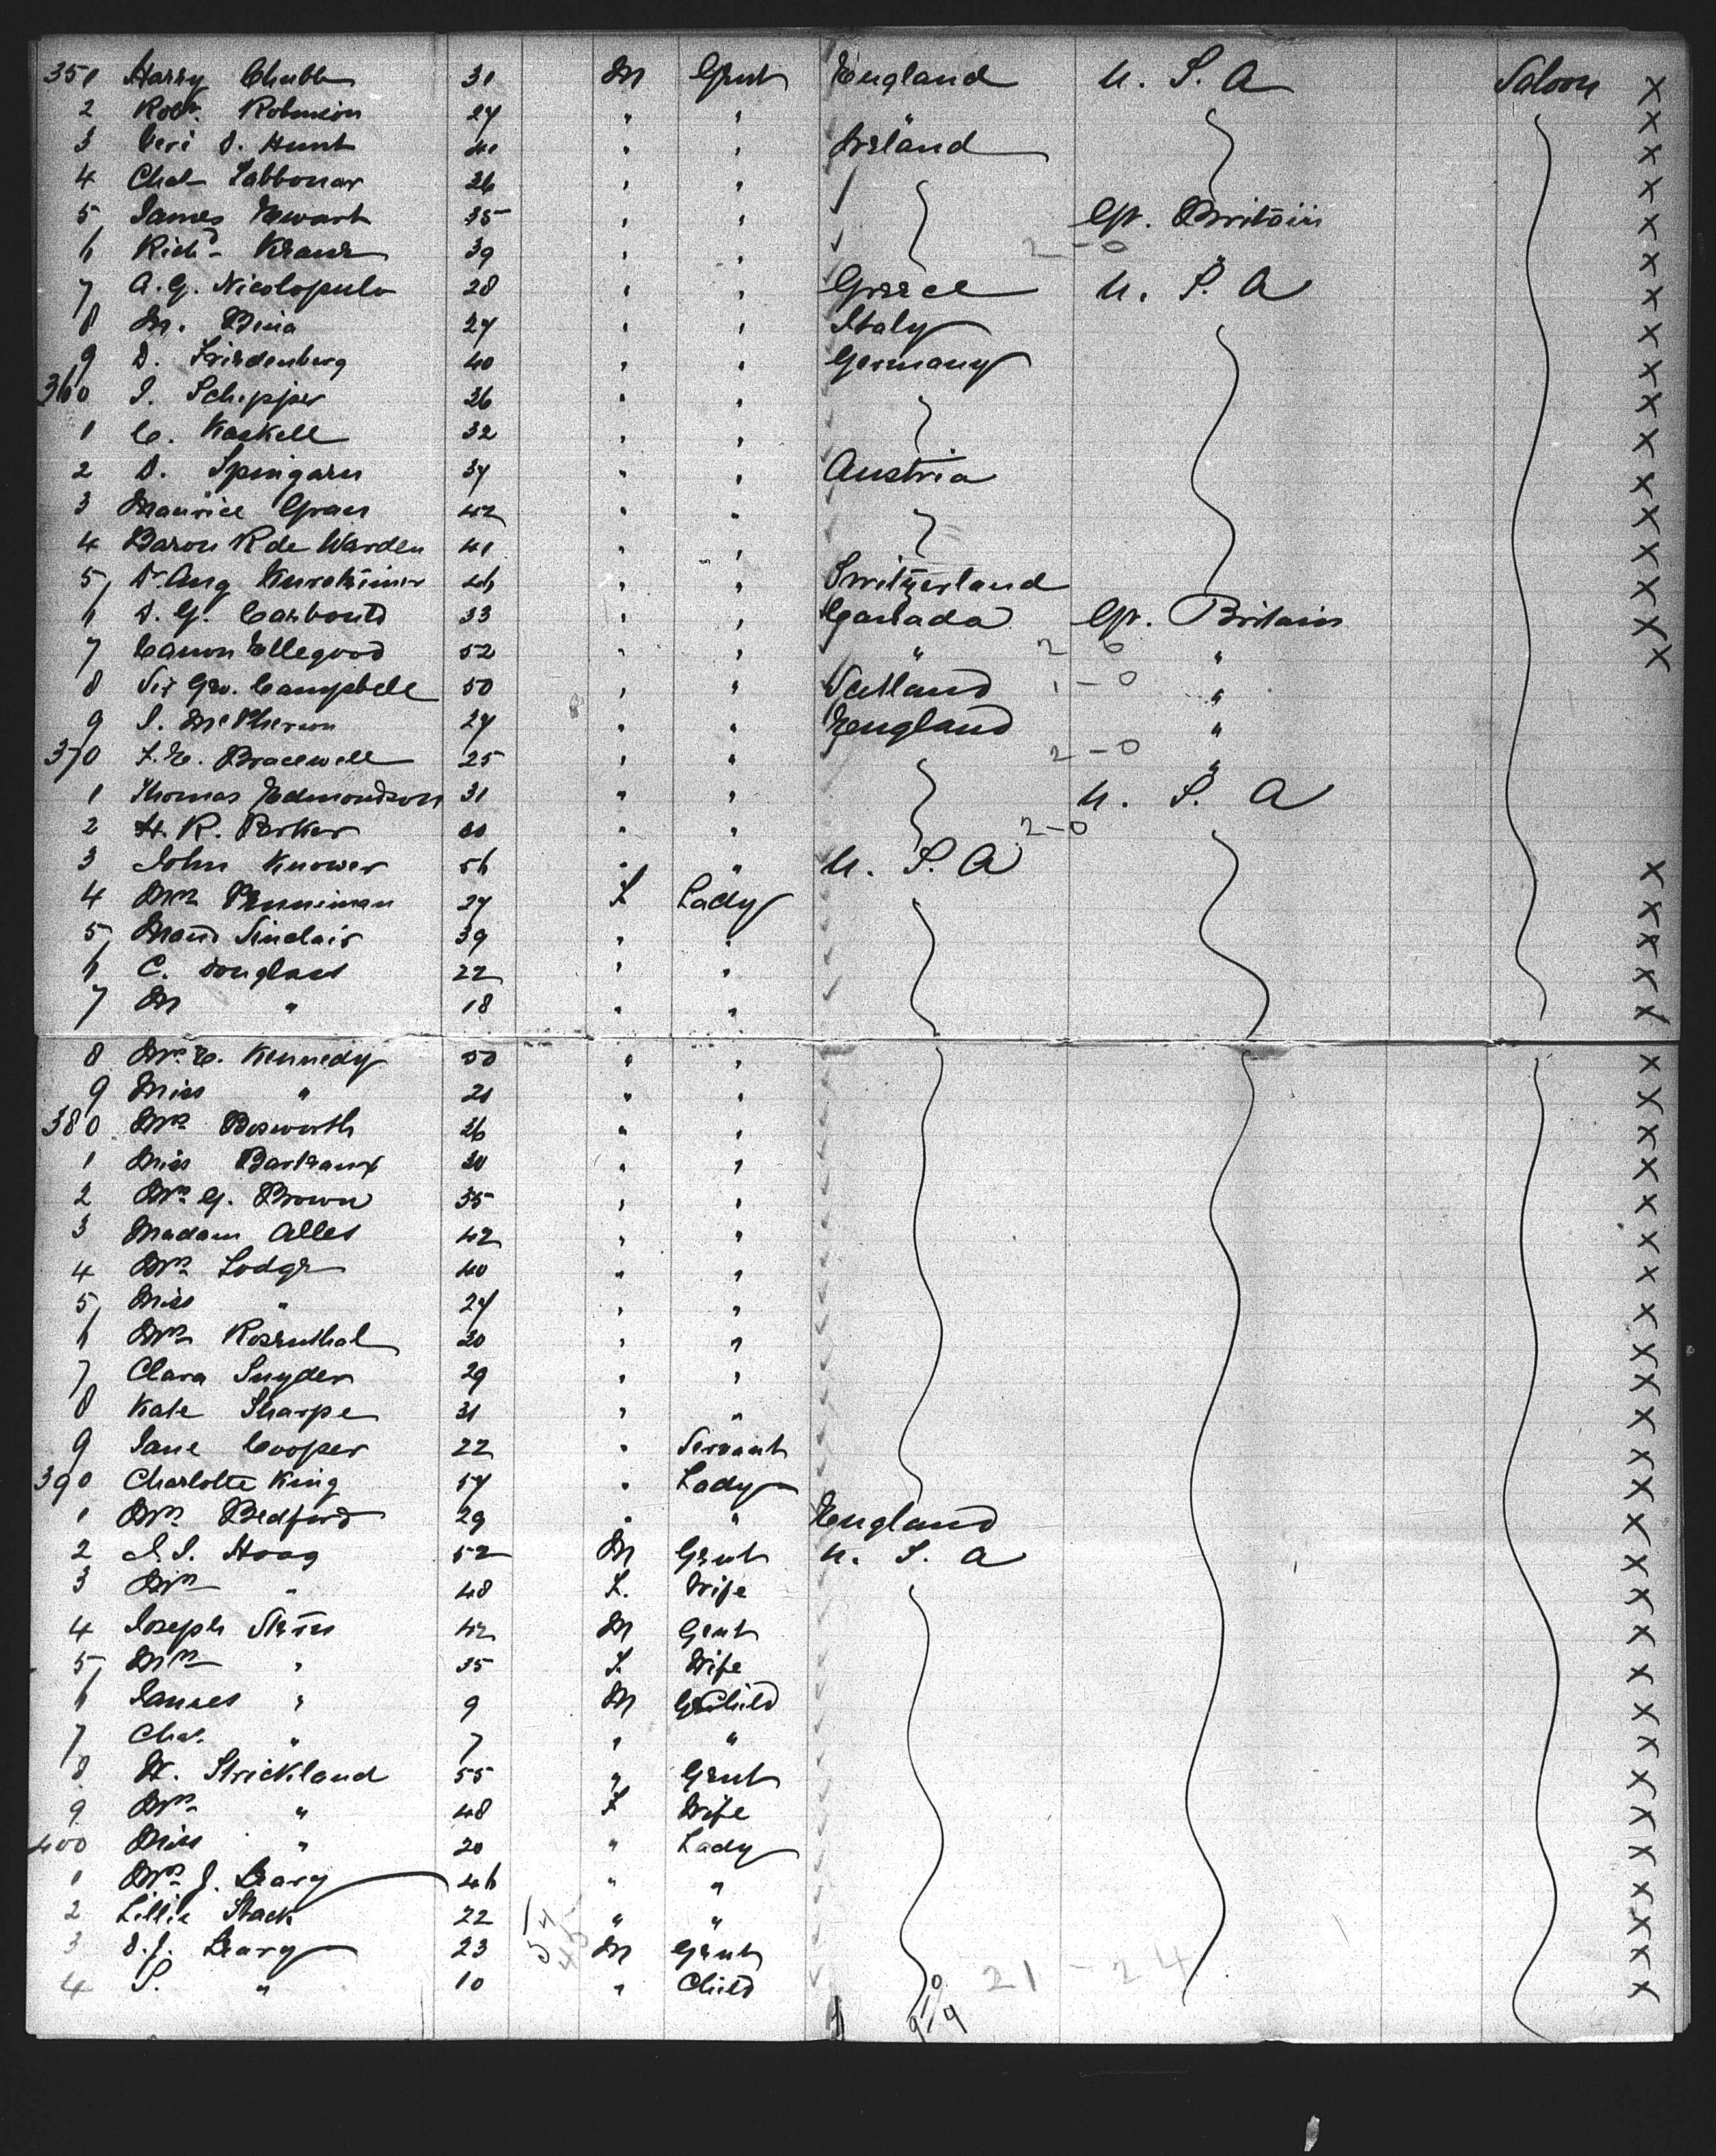 351 Harry Chubb 31 M Gent England U. S. A Saloon X
2 Robt. Robinson 27 " " X
3 Levi D. Hunt 41 " " Ireland X
4 Chas 36 " " X
5 James Ewart 35 " " Gt. Britain X
6 Richd Kranz 39 " " " 2-0 X
7 A. G. Nicolopulo 28 " " Greece U. S. A X
8 M. Bina 27 " " Italy X
9 D. Friedenberg 40 " " Germany X
360 I. Schipper 36 " " X
1 C. Kaskell 32 " " X
2 D. Spingarn 37 " " Austria X
3 Maurice Grau 42 " " X
4 Baron R de Warden 41 " " X
5 Dr Aug 46 " " Switzerland X
6 D. G. 33 " " Canada Gt. Britain X
7 Canon Ellegood 52 " " " 2 0 " X
8 Sir Geo. Campbell 50 " " Scotland 1-0 "
9 J. McPherson 27 " " England "
370 F. E. Bracewell 25 " " 2-0 "
1 Thomas Edmondson 31 " " U. S. A
2 H. R. Parker 60 " " 2-0
3 John Knower 56 " " U. S. A X
4 Mrs Penniman 27 F Lady X
5 Maud Sinclair 39 " " X
6 C. Douglass 22 " " X
7 M " 18 " " X
8 Mrs E. Kennedy 50 " " X
9 Miss " 21 " " X
380 Mrs Bosworth 36 " " X
1 Miss 30 " " X
2 Mrs G. Brown 35 " " X
3 Madam Alles 42 " " X
4 Mrs Lodge 40 " " X
5 Miss " 27 " " X
6 Mrs Rosenthal 30 " " X
7 Clara Snyder 29 " " X
8 Kate Sharpe 31 " " X
9 Jane Cooper 22 " Servant X
390 Charlotte King 57 " Lady X
1 Mrs Bedford 29 " " England X
2 J. S. Hoag 52 M Gent U. S. A X
3 Mrs " 48 F. Wife X
4 Joseph Stern 42 M Gent X
5 Mrs " 35 F. Wife X
6 James " 9 M Child X
7 Chas. " 7 " " X
8 W. Strickland 55 " Gent X
9 Mrs " 48 F Wife X
400 Miss " 20 " Lady X
1 Mrs J. Leary 46 " " X
2 Lillie Stack 22 " " X
3 D. J. Leary 23 M Gent X
4 S. " 10 " Child 21-24 X